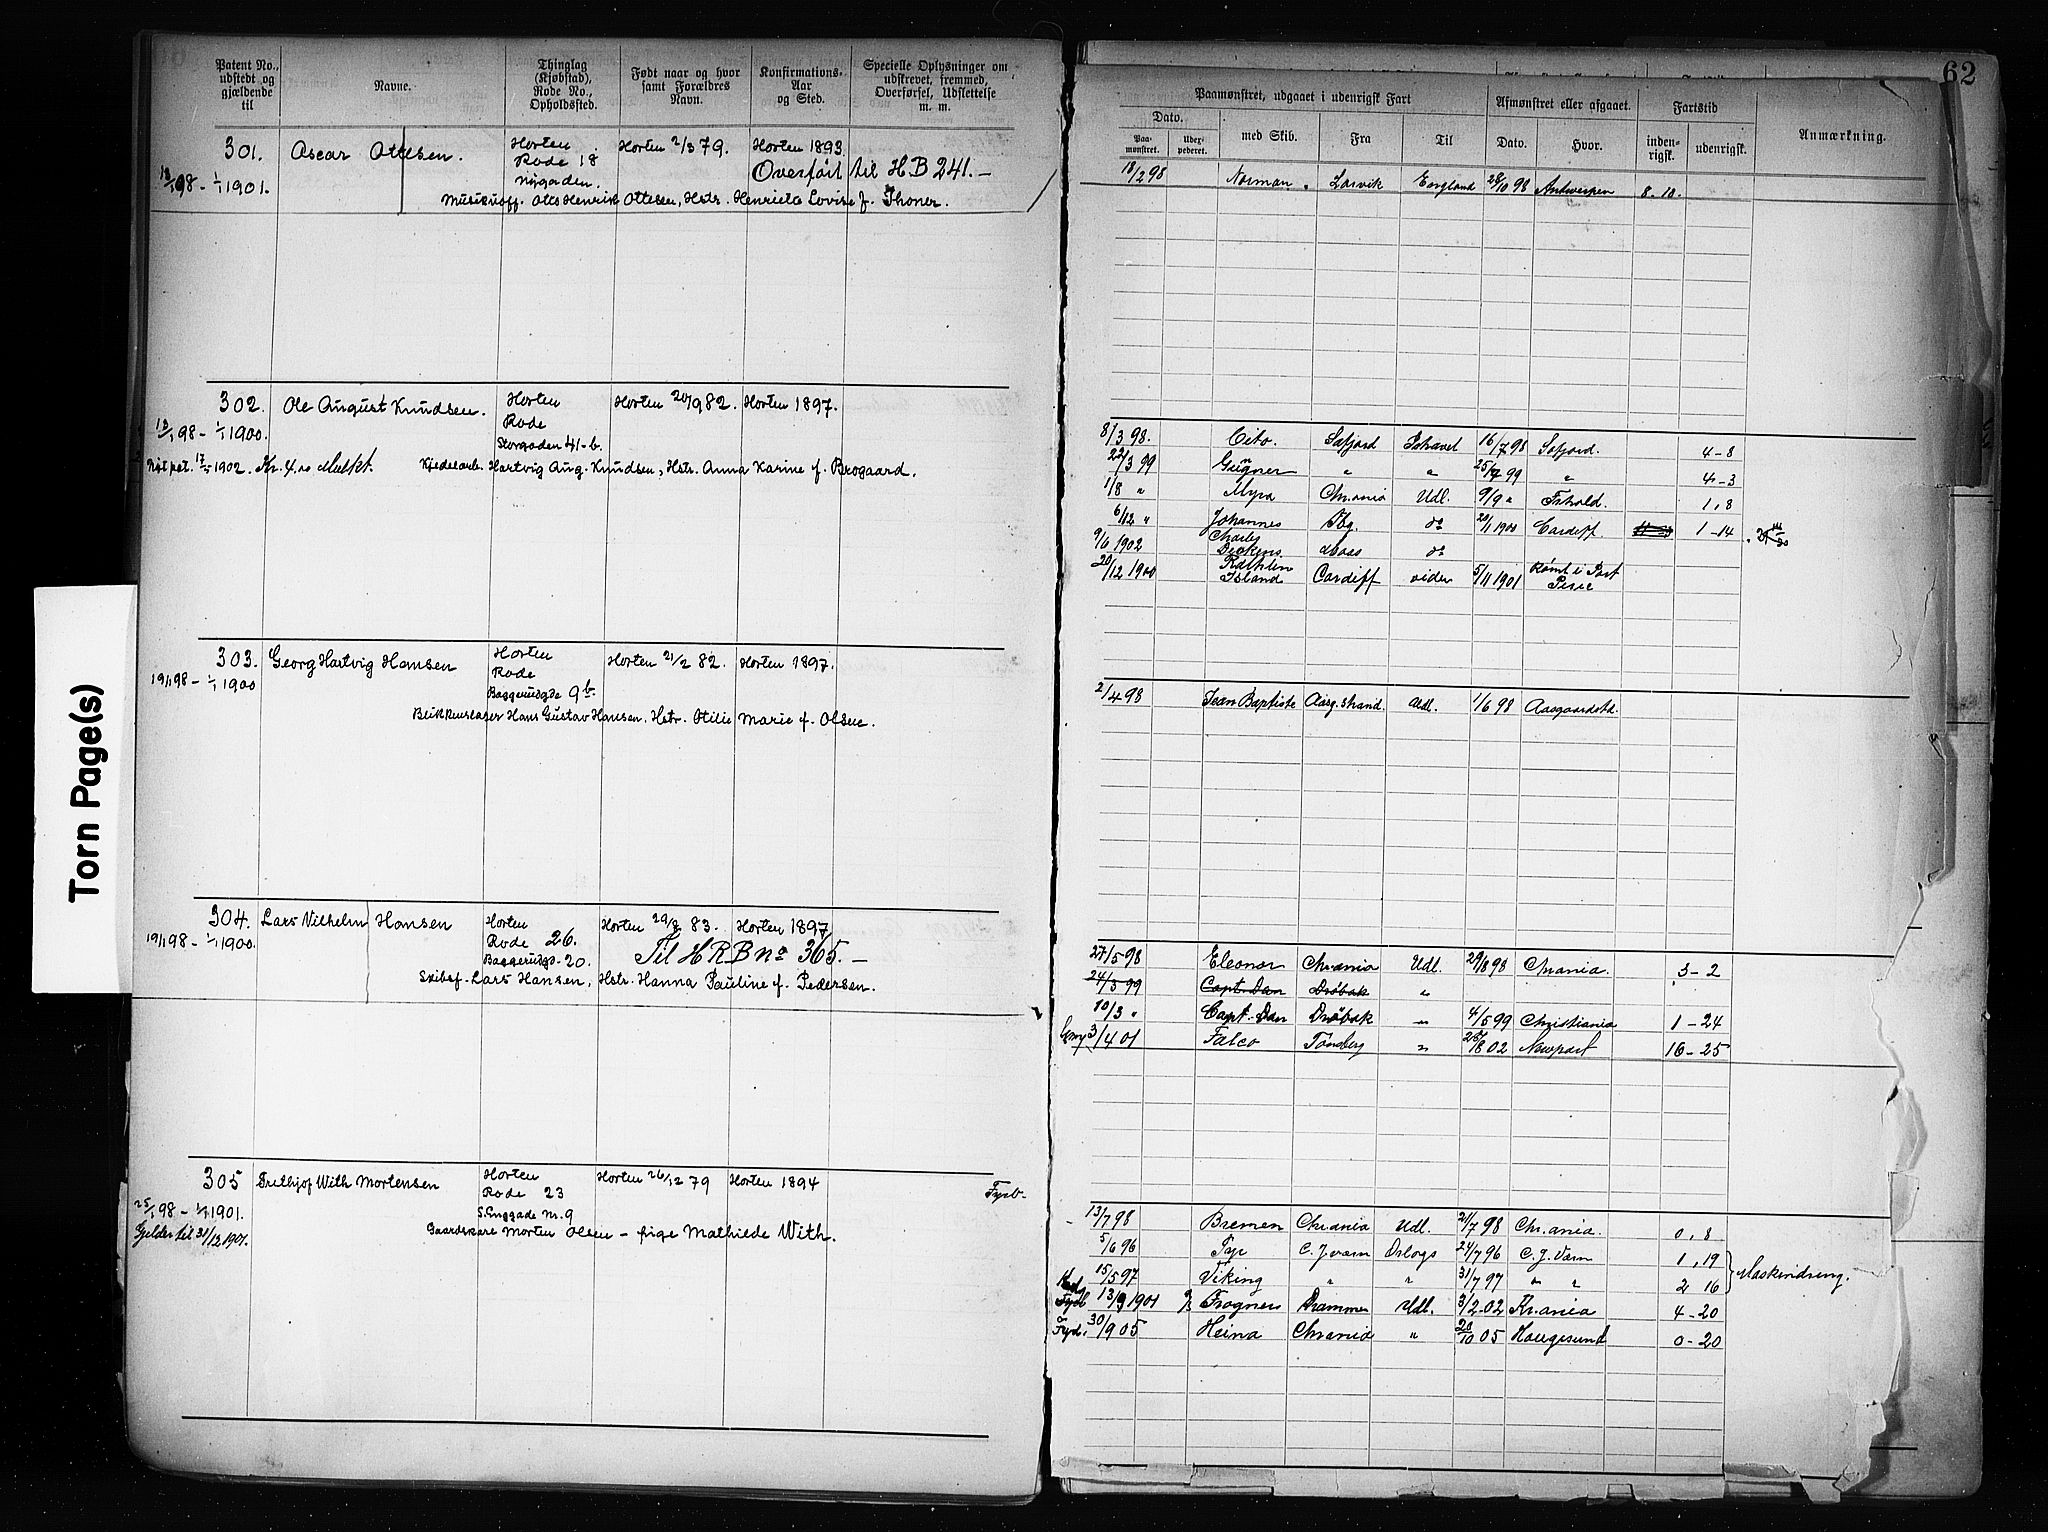 62
Torn Page(s)
Patent No., udstedt og gjældende til
Navne.
Thinglag (Kjøbstad), Rode No., Opholdssted.
Født naar og hvor samt Forældres Navn.
Konfirmations-Aar og Sted.
Specielle Oplysninger om udskrevet, fremmed, Overførsel, Udslettelse m. m.
301. Oscar Ottesen. Horten Horten 2/3 79. Horten 1893
Rode 18 Overført til H B 241. —
98 - 1/1 1901. Nygaden.
Otto Henrik Ottesen, Hstr. Henriete Lovise f. Thoner.
302. Ole August Knudsen. Horten Horten 20/9 82. Horten 1897.
Rode
98 - 1/1 1900. Storgaden 41-b.
Nyt pat. 17/5 1902. Kr. 4.00 Mulkt. Kjedelarb. Hartvig Aug. Knudsen, Hstr. Anna Karine f. Brogaard.
303. Georg Hartvig Hansen Horten Horten 21/2 82. Horten 1897.
19/1 98 - 1/1 1900 Rode
9 b.
Blikkenslager Hans Gustav Hansen. Hstr. Otilie Marie f. Olsen.
304. Lars Vilhelm Hansen Horten Horten 29/8 83. Horten 1897
19/1 98 - 1/1 1900. Rode 26. Til H R B No 365. —
Baggerudgd. 20.
Skibsf. Lars Hansen, Hstr. Hanna Pauline f. Pedersen.
305 Frithjof With Mortensen Horten Horten 26/12 79 Horten 1894 Fyrb.
Rode 23
25/1 98 - 1/1 1901. No. 9
Gjelder til 31/12 1901. Gaardskarl Morten Olsen - pige Mathilde With.
Paamønstret, udgaaet i udenrigsk Fart
Afmønstret eller afgaaet.
Fartstid
Anmærkning.
Dato.
Paamønstret.
med Skib.
Fra
Til
Dato.
Hvor.
indenrigsk.
udenrigsk.
18/2 98 Norman Larvik England 28/10 98 Antwerpen 8. 10.
8/3 98. Cito. Ishavet 16/7 98 4-8
22/3 99 " " 99 " 4-3
1/8 " Myra Chr.ania Udl. 9/9 " 1, 8
6/12 " Johannes do 20/1 1900 Cardiff. 1-14
9/6 1902 Charles Dickens do
20/12 1900 Rathlin Island Cardiff videre 5/11 1901 Rømt i Port Pirie
2/4 98 Jean Baptiste Aasg.strand Udl. 1/6 98 Aasgaardstd.
27/5 98 Eleonor Chr.ania Udl. 29/8 98 Chr.ania. 3-2
24/3 99 Capt. Dan Drøbak "
10/3 " Capt. Dan Drøbak " 4/5 99 Christiania 1-24
3/4 01 Falco Tønsberg " 02 Newport 16-25
13/7 98 Bremen Chr.ania Udl. 21/7 98 Chr.ania. 0, 8
5/6 96 Tyr C. J. værn Orlogs 24/7 96 C. J. Værn 1, 19
15/5 97 Viking " " 31/7 97 " " 2 16 Maskindreng.
13/9 1901 Frogner Drammen Udl. 3/2 02 Kr.ania 4-20
Fyrb. 30/9 05 Heina Chr.ania " 20/10 05 Haugesund 0-20